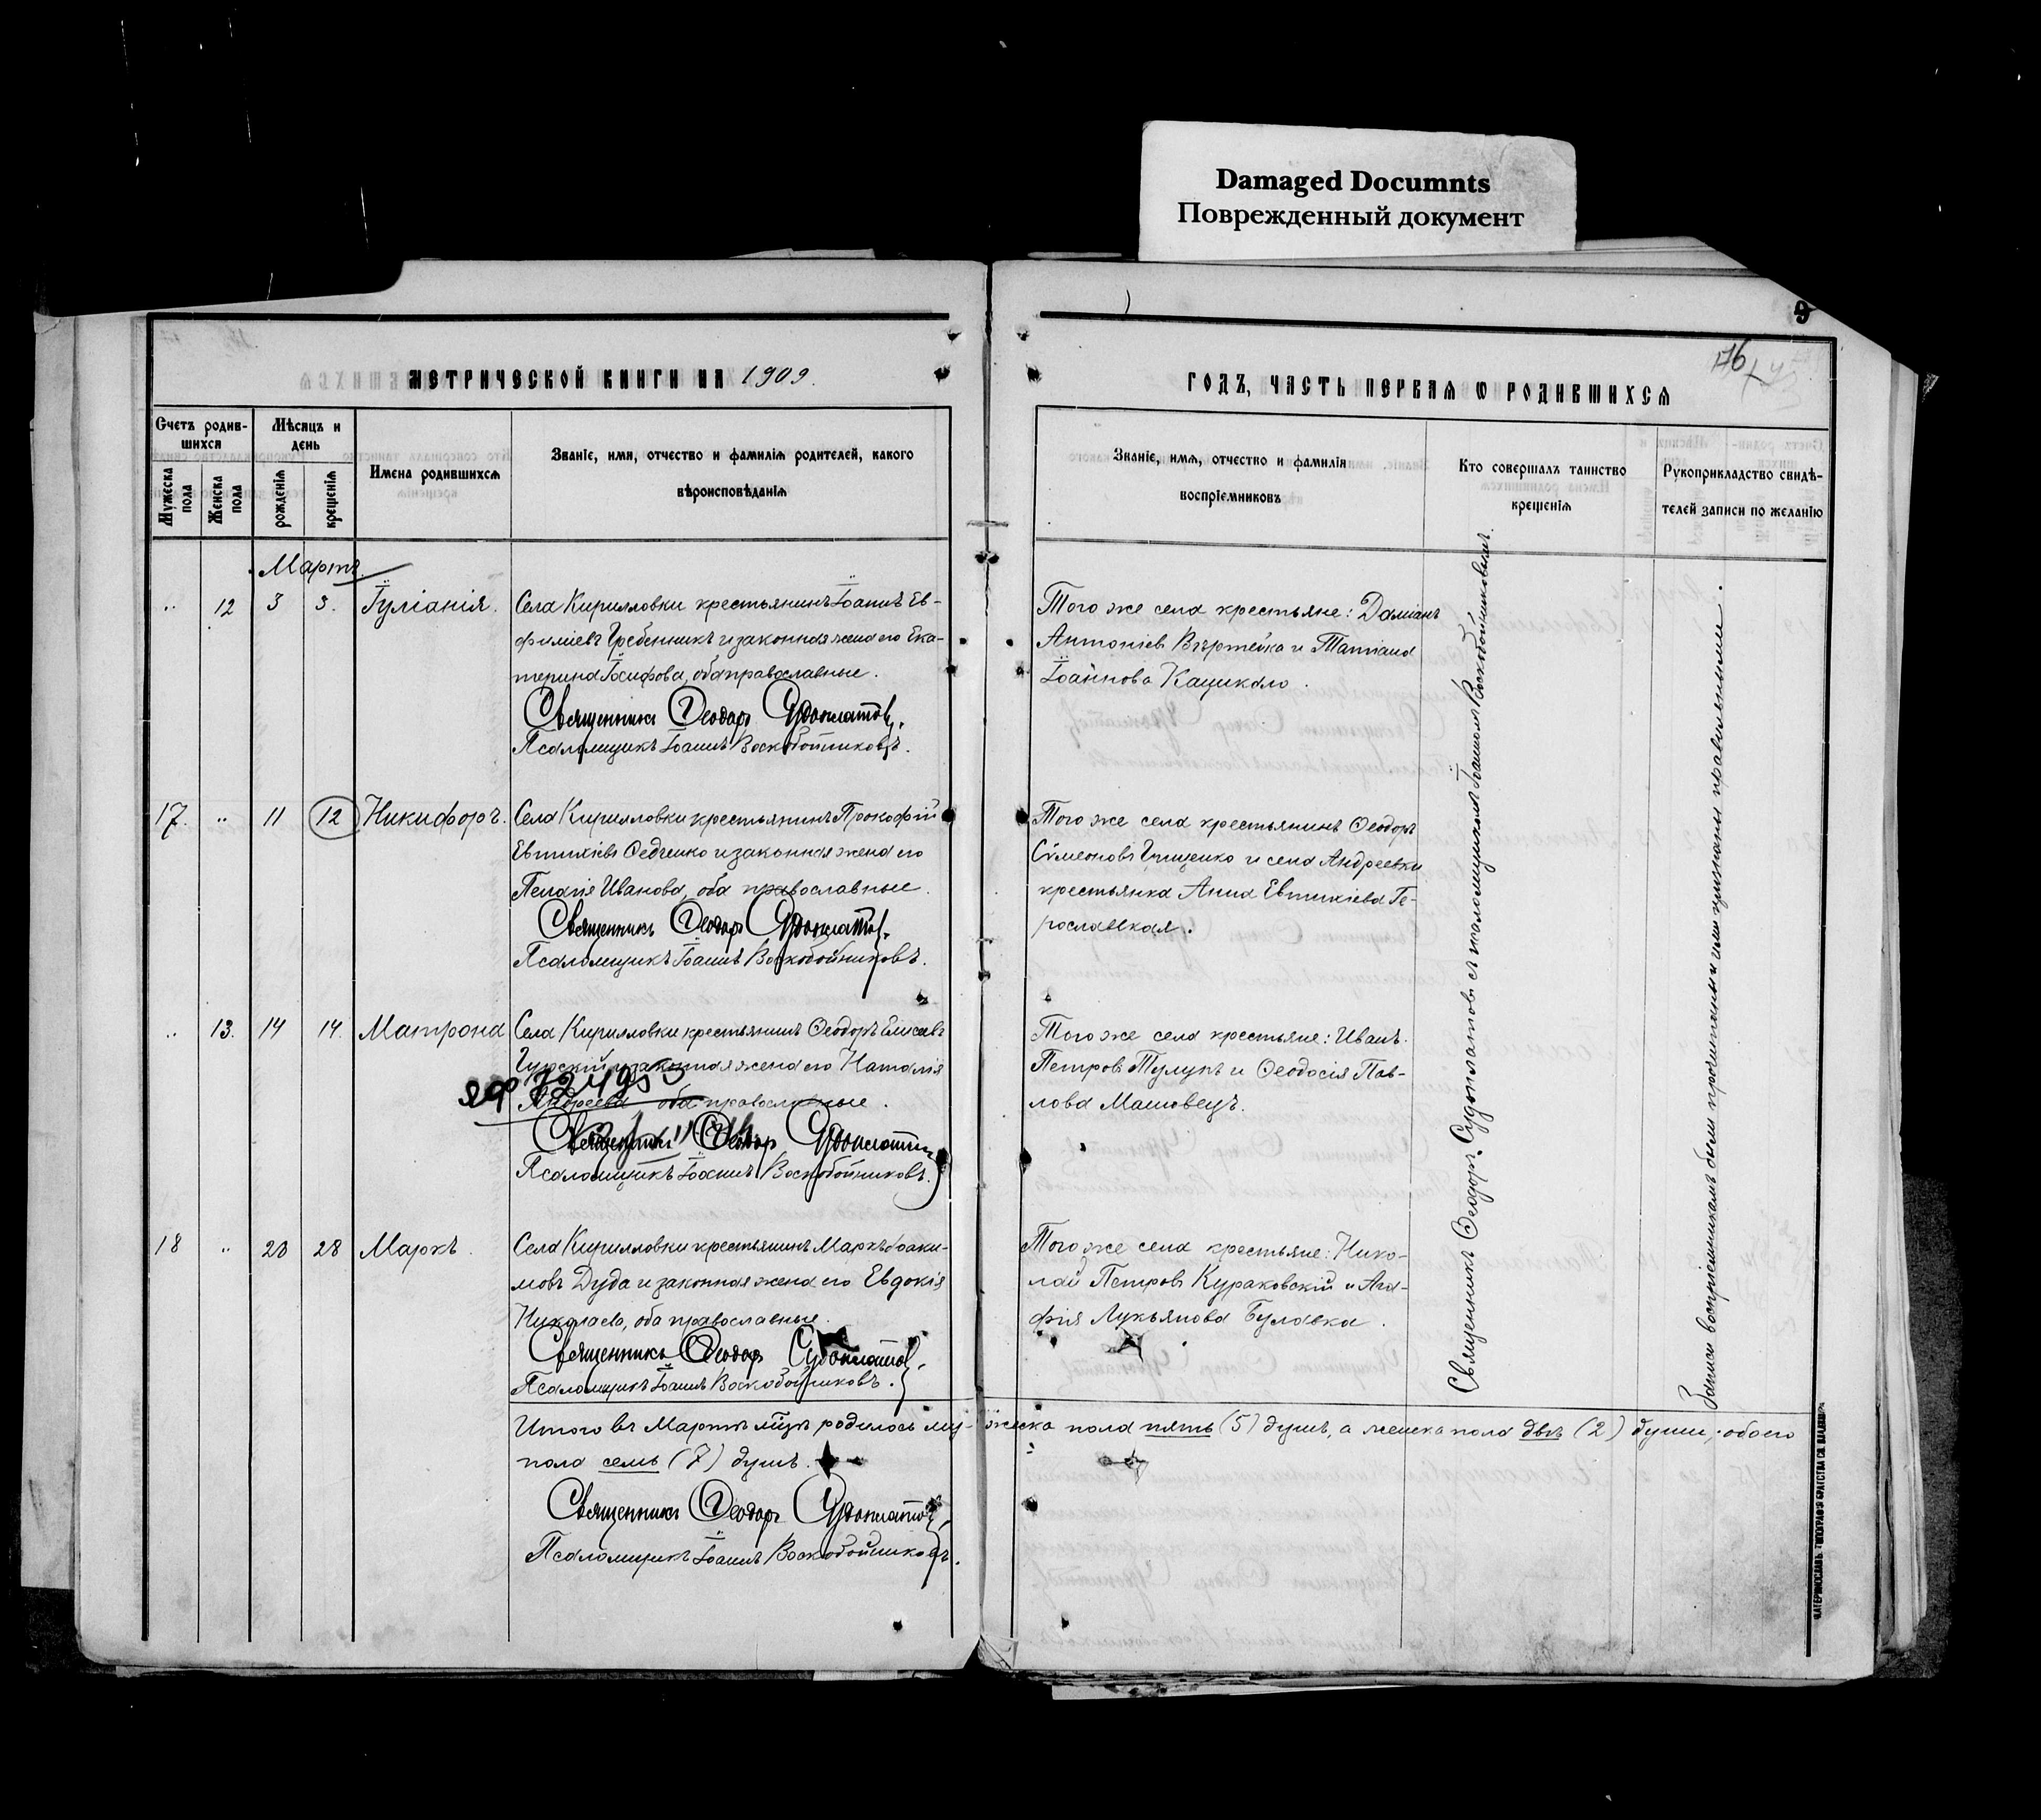 Damaged Documnts
Поврежденный документ
9
176
МЕТРИЧЕСКОЙ КНИГИ НА 1909.
ГОДЪ, ЧАСТЬ ПЕРВАЯ Ѡ РОДИВШИХСЯ
Счетъ родив-
шихся
Мужеска пола
Женска пола
Мѣсяцъ и
день
рожденія
крещенія
Имена родившихся
Званіе, имя, отчество и фамилія родителей, какого
вѣроисповѣданія
Званіе, имя, отчество и фамилія
воспріемниковъ
Кто совершалъ таинство
крещенія
Рукоприкладство свидѣ-
телей записи по желанію
Мартъ.
" 12 3 3. Іуліанія.
Села Кирилловки крестьянинъ Іоаннъ Ев-
фиміевъ Гребенникъ и законная жена его Ека-
терина Іосифова, оба православные.
Священникъ Ѳеодоръ Судоплатовъ.
Псаломщикъ Іоаннъ Воскобойниковъ.
Того же села крестьяне: Даміанъ
Антоніев Вертейка и Татіана
Іоаннова Кацикало.
17. " 11 12 Никифоръ.
Села Кирилловки крестьянинъ Прокофій
Евтихіевъ Федченко и законная жена его
Пелагія Иванова, оба православные.
Священникъ Ѳеодоръ Судоплатовъ.
Псаломщикъ Іоаннъ Воскобойниковъ.
Того же села крестьянинъ Ѳеодоръ
Сѵмеоновъ Грищенко и села Андреевки
крестьянка Анна Евтихіева Ге-
рославская.
" 13. 14 14. Матрона
Села Кирилловки крестьянинъ Ѳеодоръ Елисеевъ
Гурскій и законная жена его Наталія
Андреева оба православные.
Священникъ Ѳеодоръ Судоплатовъ
Псаломщикъ Іоаннъ Воскобойниковъ.
Того же села крестьяне: Иванъ
Петров Тулупъ и Ѳеодосія Пав-
лова Машовецъ.
18 " 28 28 Маркъ.
Села Кирилловки крестьянинъ Маркъ Іоаки-
мовъ Дуда и законная жена его Евдокія
Николаева, оба православные.
Священникъ Ѳеодоръ Судоплатовъ.
Псаломщикъ Іоаннъ Воскобойниковъ.
Того же села крестьяне: Нико-
лай Петровъ Кураковскій и Ага-
фія Лукьянова Булавка.
Священникъ Ѳеодоръ Судоплатовъ съ псаломщикомъ Іоанномъ Воскобойниковымъ.
Записи воспріемникамъ были прочитаны и ими признаны правильными.
Итого въ Мартѣ мѣс. родилось му-жеска пола пять (5) душъ, а женска пола двѣ (2) души, обоего
пола семь (7) душъ.
Священникъ Ѳеодоръ Судоплатовъ,
Псаломщикъ Іоаннъ Воскобойниковъ.